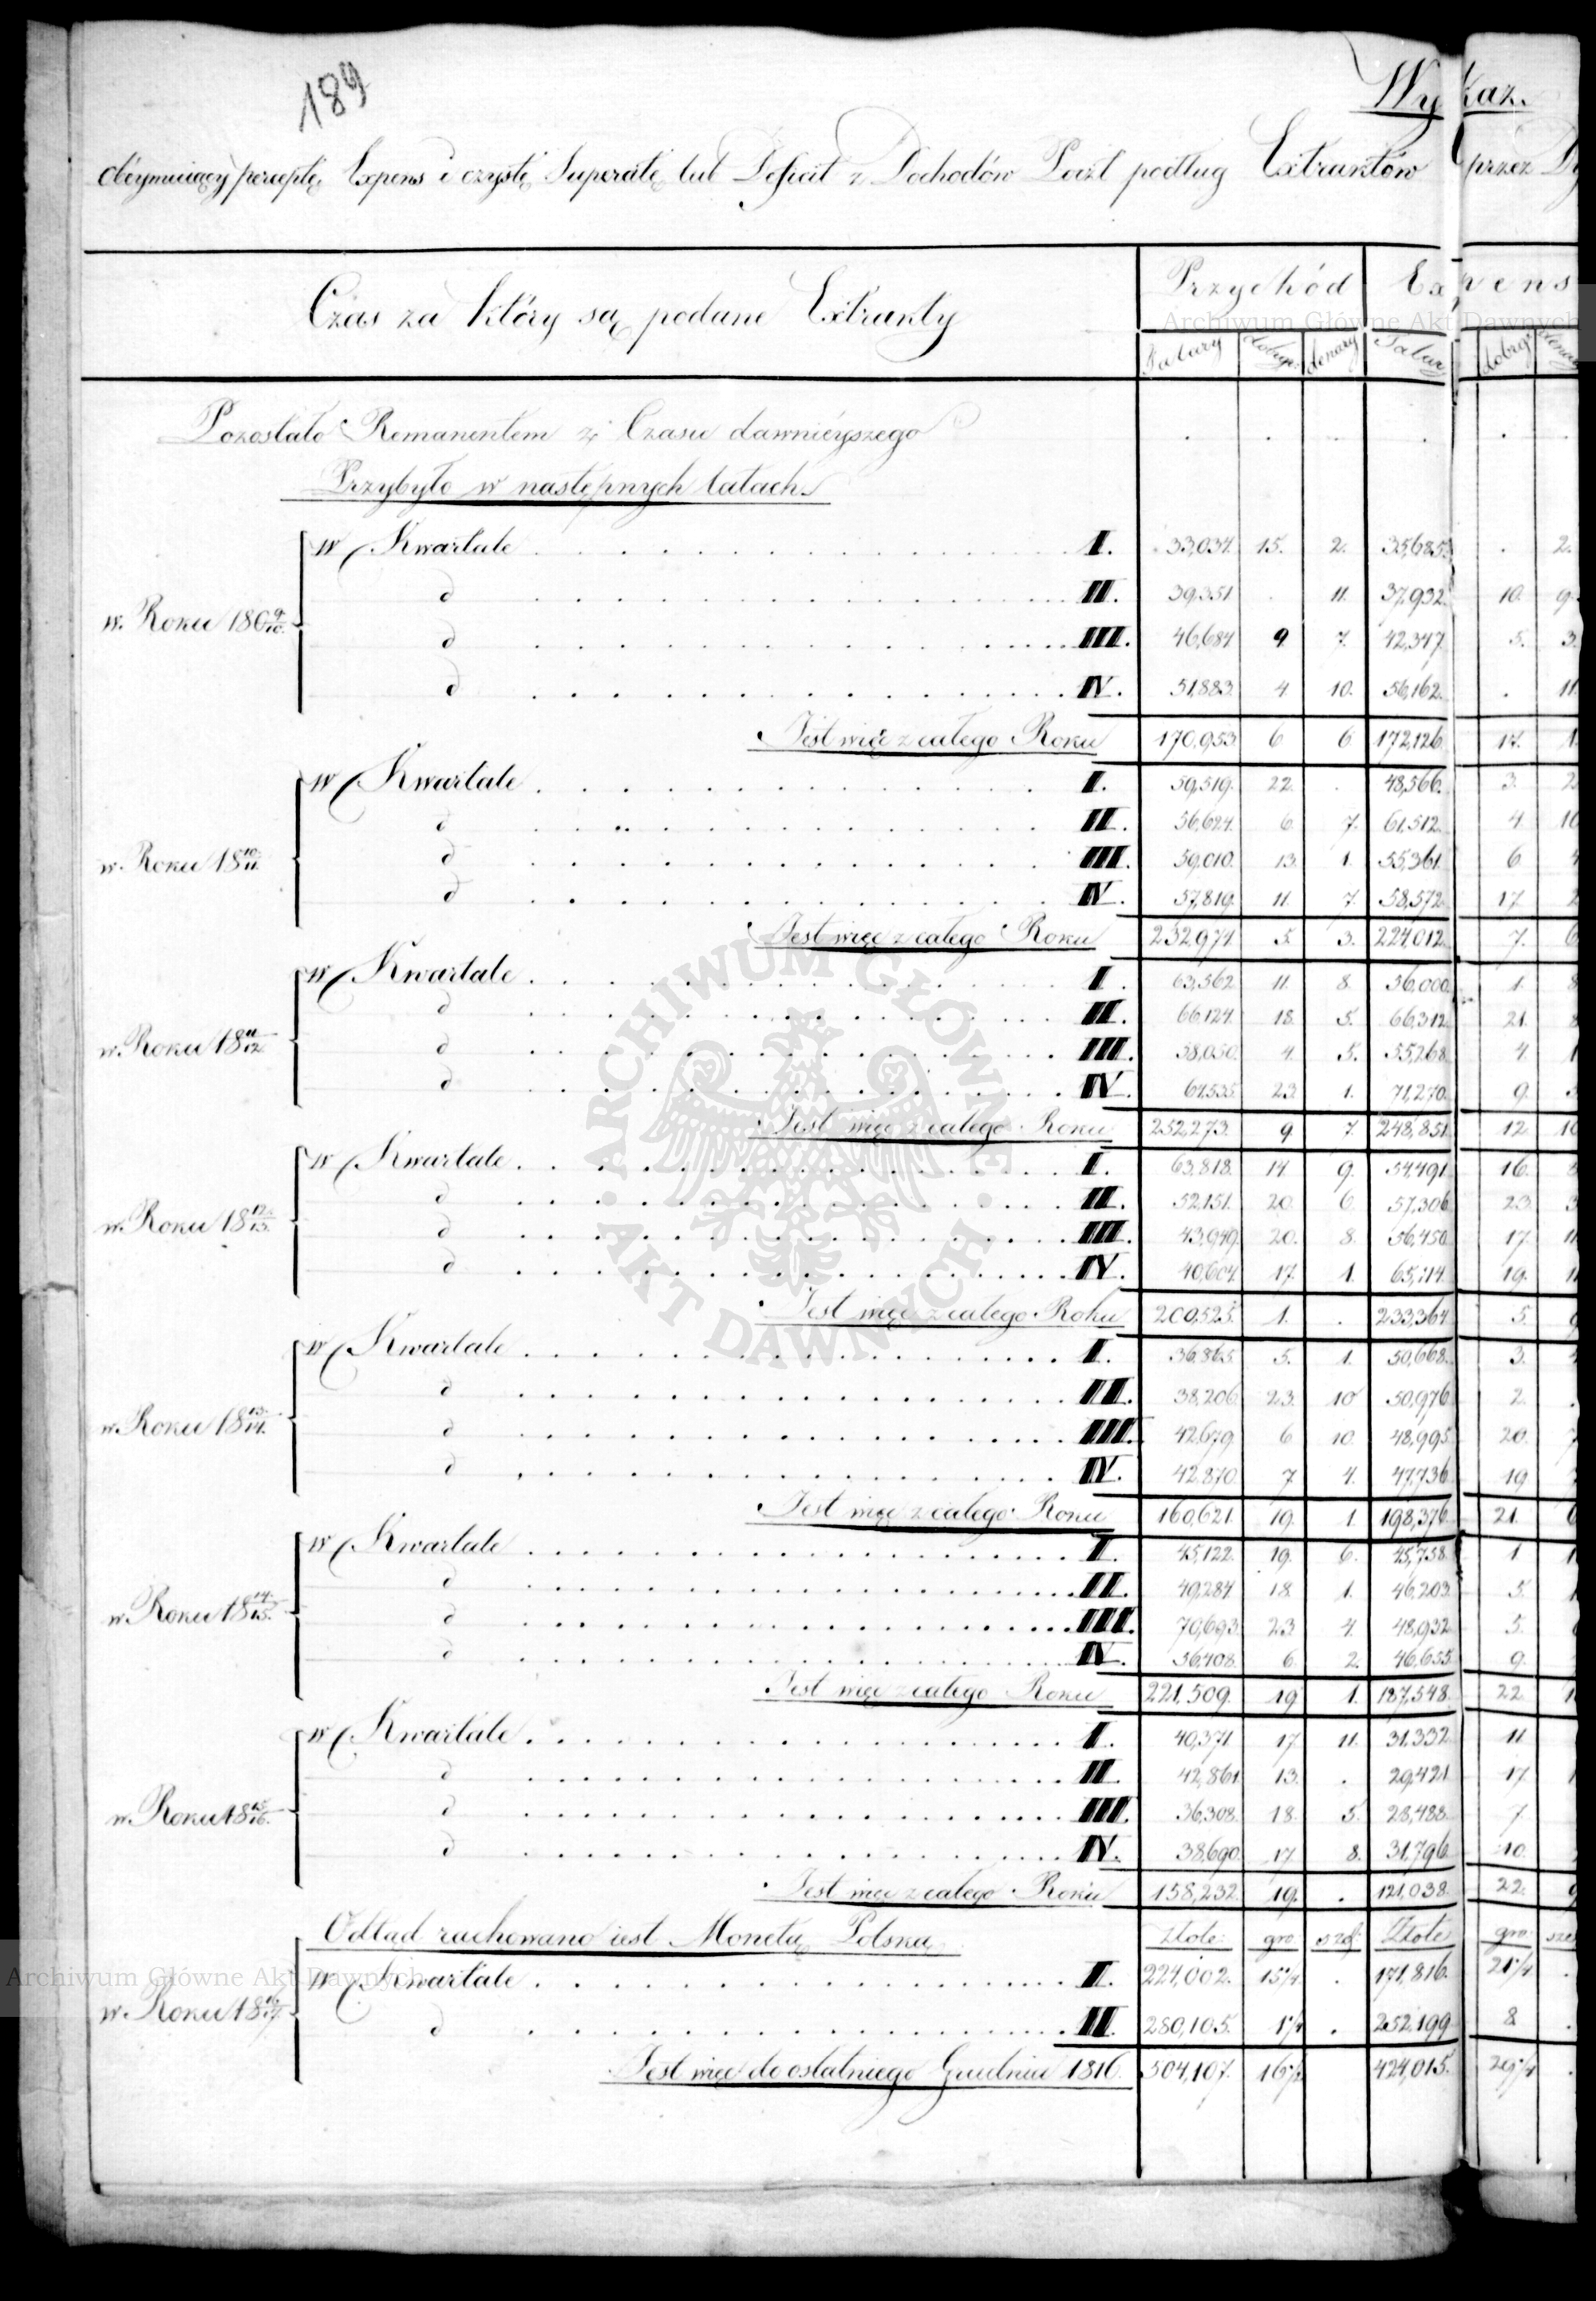 189
Wykaz.
obeymuiący perceptę Expens i czystę Superatę lub Deficit z Dochodów Poczt podług Extraktów przez
Czas za który są podane Extrakty
Przychód Expens
Talary dobrgr denary Talary dobrgr denary
Pozostało Remanentem z Czasu dawnieyszego
Przybyło w następnych latach.
w Roku 1809/10.
w Kwartale I. 33,034. 15. 2. 35,685. . 2.
d II. 39,351 . 11. 37,932. 10. 9.
d III. 46,684 9 7. 42,347. 5. 3.
d IV. 51,883. 4 10. 56,162. . 11.
Jest więc z całego Roku 170,953 6 6 172,126 17. 1.
w Roku 1810/11.
w Kwartale I. 59,519. 22. . 48,566. 3. 2
d II. 56,624. 6. 7. 61,512. 4. 10
d III. 59,010. 13. 1. 55,361. 6 4
d IV. 57,819. 11. 7. 58,572. 17. 2
Jest więc z całego Roku 232,974. 5. 3. 224,012. 7. 6
w Roku 1811/12.
w Kwartale I. 63,562. 11. 8. 56,000. 1. 8
d II. 66,124. 18. 5. 66,312. 21. 8
d III. 58,050. 4. 5. 55,268. 4. 1
d IV. 64,535. 23. 1. 71,270. 9. 3
Jest więc z całego Roku 252,273. 9. 7. 248,851. 12. 10
w Roku 1812/13.
w Kwartale I. 63,818. 14. 9. 54,491. 16. 8
d II. 52,151. 20. 6. 57,306. 23. 3
d III. 43,949. 20. 8. 56,450. 17. 11
d IV. 40,604. 17. 1. 65,114. 19. 11
Jest więc z całego Roku 200,525. 1. . 233,364. 5. 9
w Roku 1813/14.
w Kwartale I. 36,865. 5. 1. 50,668. 3. 4
d II. 38,206. 23. 10 50,976. 2. .
d III. 42,679 6 10. 48,995. 20. 7
d IV. 42,870 7 4. 47,736. 19
Jest więc z całego Roku 160,621. 19. 1. 198,376. 21. 6
w Roku 1814/15.
w Kwartale I. 45,122. 19. 6. 45,758. 1 1
d II. 49,284. 18 1. 46,203. 5. 1
d III. 70,693. 23 4. 48,932. 5.
d IV. 56,408. 6. 2. 46,655. 9.
Jest więc z całego Roku 221,509. 19 1. 187,548. 22. 1
w Roku 1815/16.
w Kwartale I. 40,371 17 11. 31,332. 11
d II. 42,861. 13. . 29,421. 17. 1
d III. 36,308. 18. 5. 28,488. 7.
d IV. 38,690. 17 8. 31,796. 10.
Jest więc z całego Roku 158,232. 19. . 121,038. 22. 9
Odtąd rachowano iest Monetą Polską Złote gro: szel: Złote gro: szel
w Roku 1816/17.
w Kwartale I. 224,002. 15 1/4. . 171,816. 21 1/4 .
d II. 280,105. 1 1/4 . 252,199 8 .
Jest więc do ostatniego Grudnia 1816. 504,107. 16 1/2 424,015. 29 1/4 .
Archiwum Główne Akt Dawnych
Archiwum Główne Akt Dawnych
ARCHIWUM GŁÓWNE AKT DAWNYCH